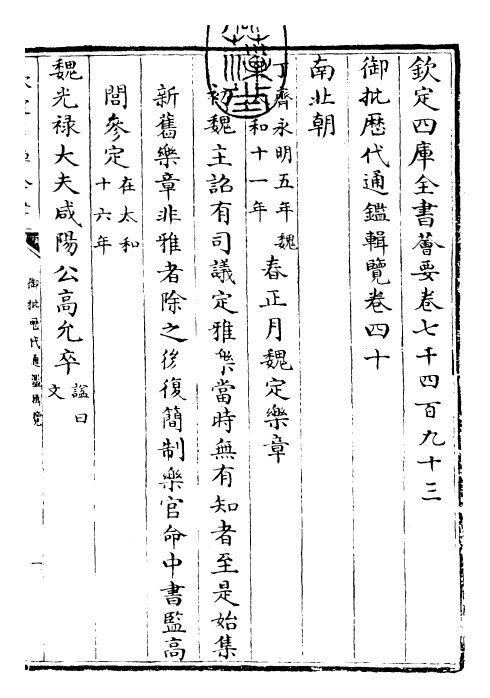 欽定四庫全書薈要卷七千四百九十三
御批歴代通鑑輯覽卷四十
南北朝
丁齊永明五年魏
和十一年
春正月魏定樂章
初魏主詔有司議定雅樂當時無有知者至是始集
新舊樂章非雅者除之後復簡制樂官命中書監高
閭參定在太和
十六年
魏光禄大夫咸陽公高允卒諡曰
文
御批歴代通鑑輯覽
一